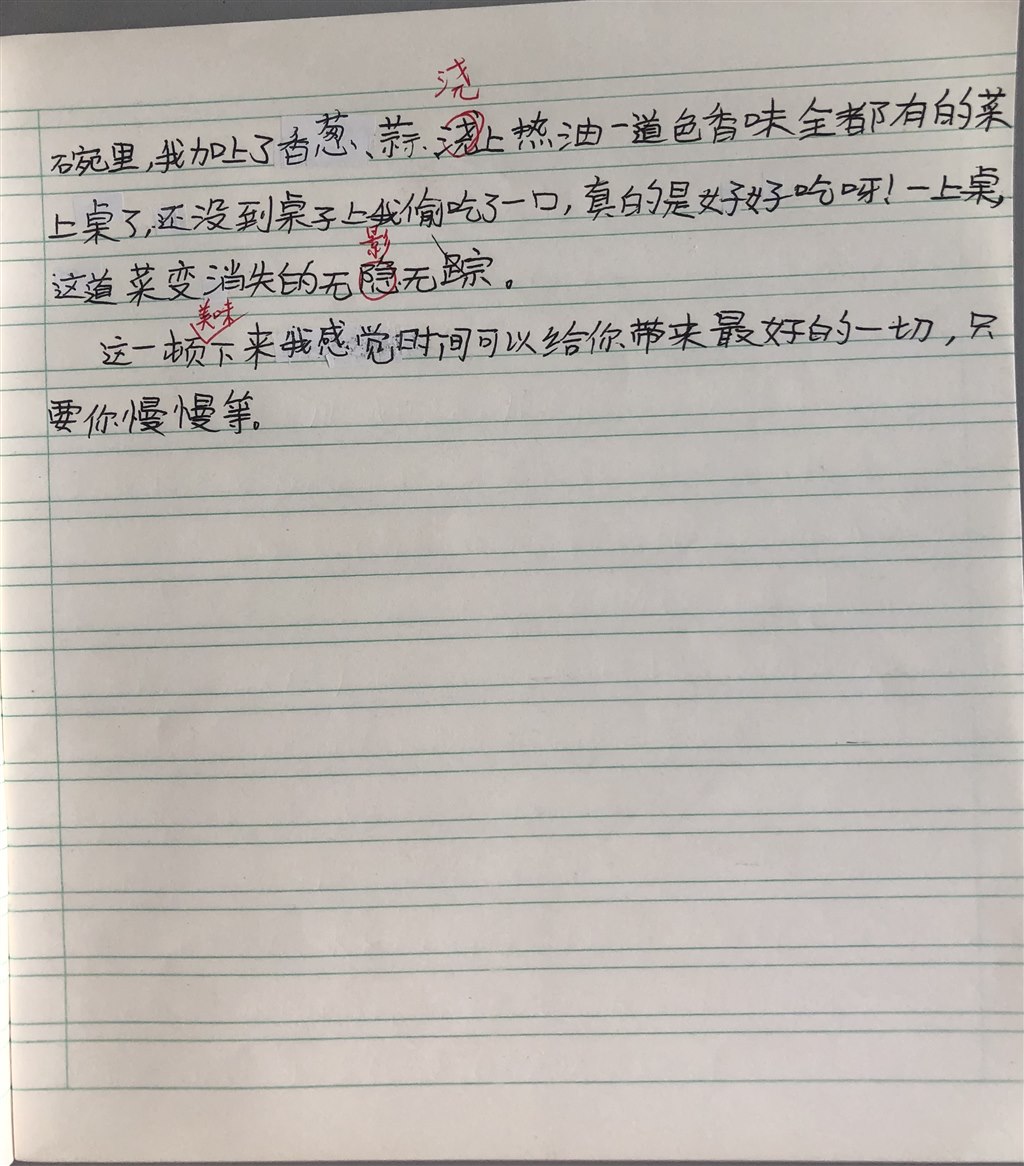 浇
碗里,我加上了香葱、蒜、浇上热油一道色香味全都有的菜
上桌了,还没到桌子上我偷吃了一口,真的是好好吃呀!一上桌,
影
这道菜变消失的无隐无踪。
美味
这一顿下来我感觉时间可以给你带来最好的一切,只
要你慢慢等。